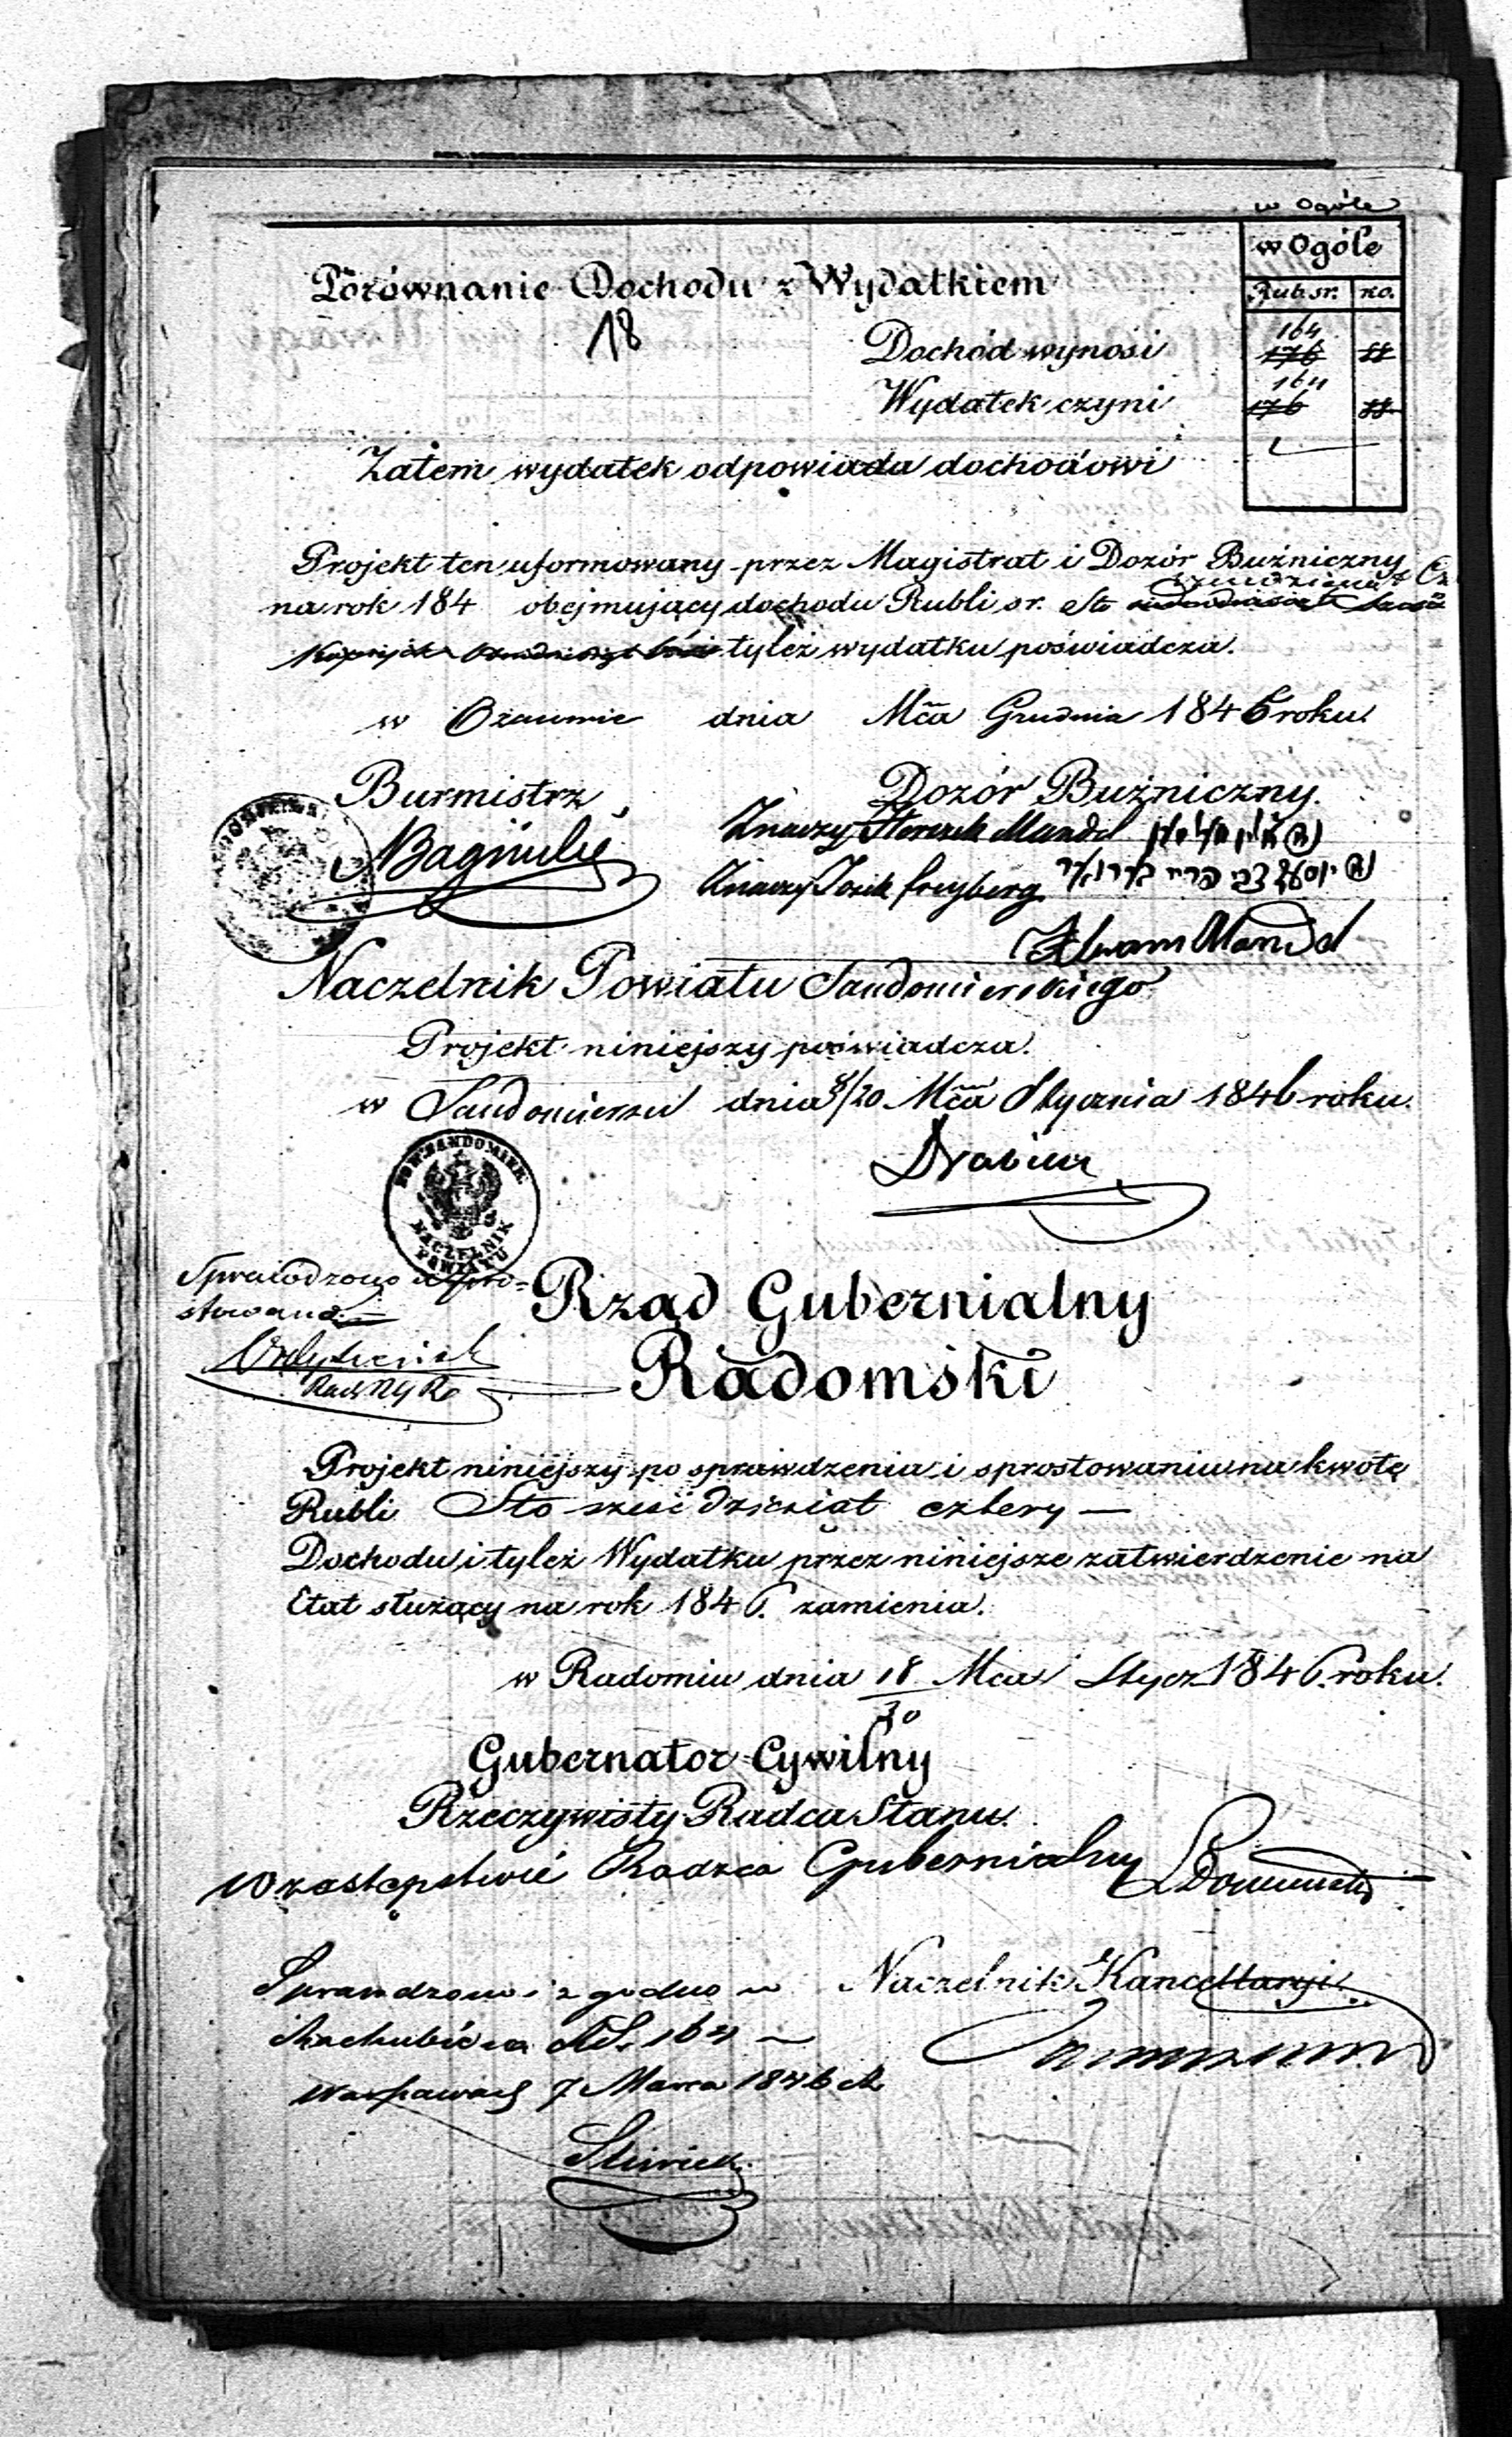 w Ogóle
w Ogóle
Porównanie Dochodu z Wydatkiem
Rub. sr. ko.
18
164
Dochód wynosi 176 88
164
Wydatek czyni 176 88
Zatem wydatek odpowiada dochodowi
Projekt ten uformowany przez Magistrat i Dozór Bużniczny
na rok 184 obejmujący dochodu Rubli sr. Sto
tyleż wydatku poświadcza.
w Ożarowie dnia Mca Grudnia 1846 roku.
Burmistrz Dozór Bużniczny.
Znaczy Mandel
Znaczy Josek Freyberg יוסף צבי פריי בערג
Mandel
Naczelnik Powiatu Sandomierskiego
Projekt niniejszy poświadcza.
w Sandomierzu dnia 8/20 Mca Stycznia 1846 roku.
POW: SANDOMIER.
NACZELNIK
POWIATU
Sprawdzono i spro=
stowano
Rząd Gubernialny
Radomski
Projekt niniejszy po sprawdzeniu i sprostowaniu na kwotę
Rubli Sto sześćdziesiąt cztery —
Dochodu i tyleż Wydatku przez niniejsze zatwierdzenie na
Etat służący na rok 1846. zamienia.
w Radomiu dnia 18/30 Mca Stycz 1846. roku.
Gubernator Cywilny
Rzeczywisty Radca Stanu.
W zastępstwie Radzca Gubernialny
Sprawdzono i zgodno w Naczelnik Kancellaryi
164 —
7 Marca 1846